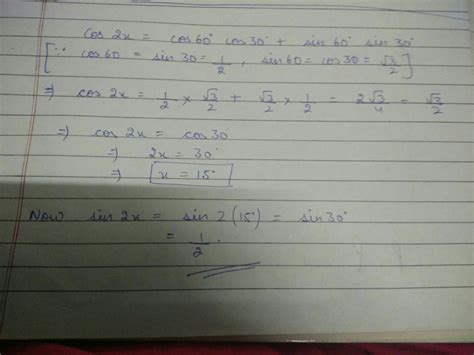 cos 2x = cos 60° cos 30° + sin 60° sin 30°
[∵ cos 60 = sin 30 = 1/2 , sin 60 = cos 30 = √3/2]
⇒ cos 2x = 1/2 × √3/2 + √3/2 × 1/2 = 2√3/4 = √3/2
⇒ cos 2x = cos 30°
⇒ 2x = 30°
⇒ x = 15°
Now sin 2x = sin 2(15°) = sin 30°
= 1/2.